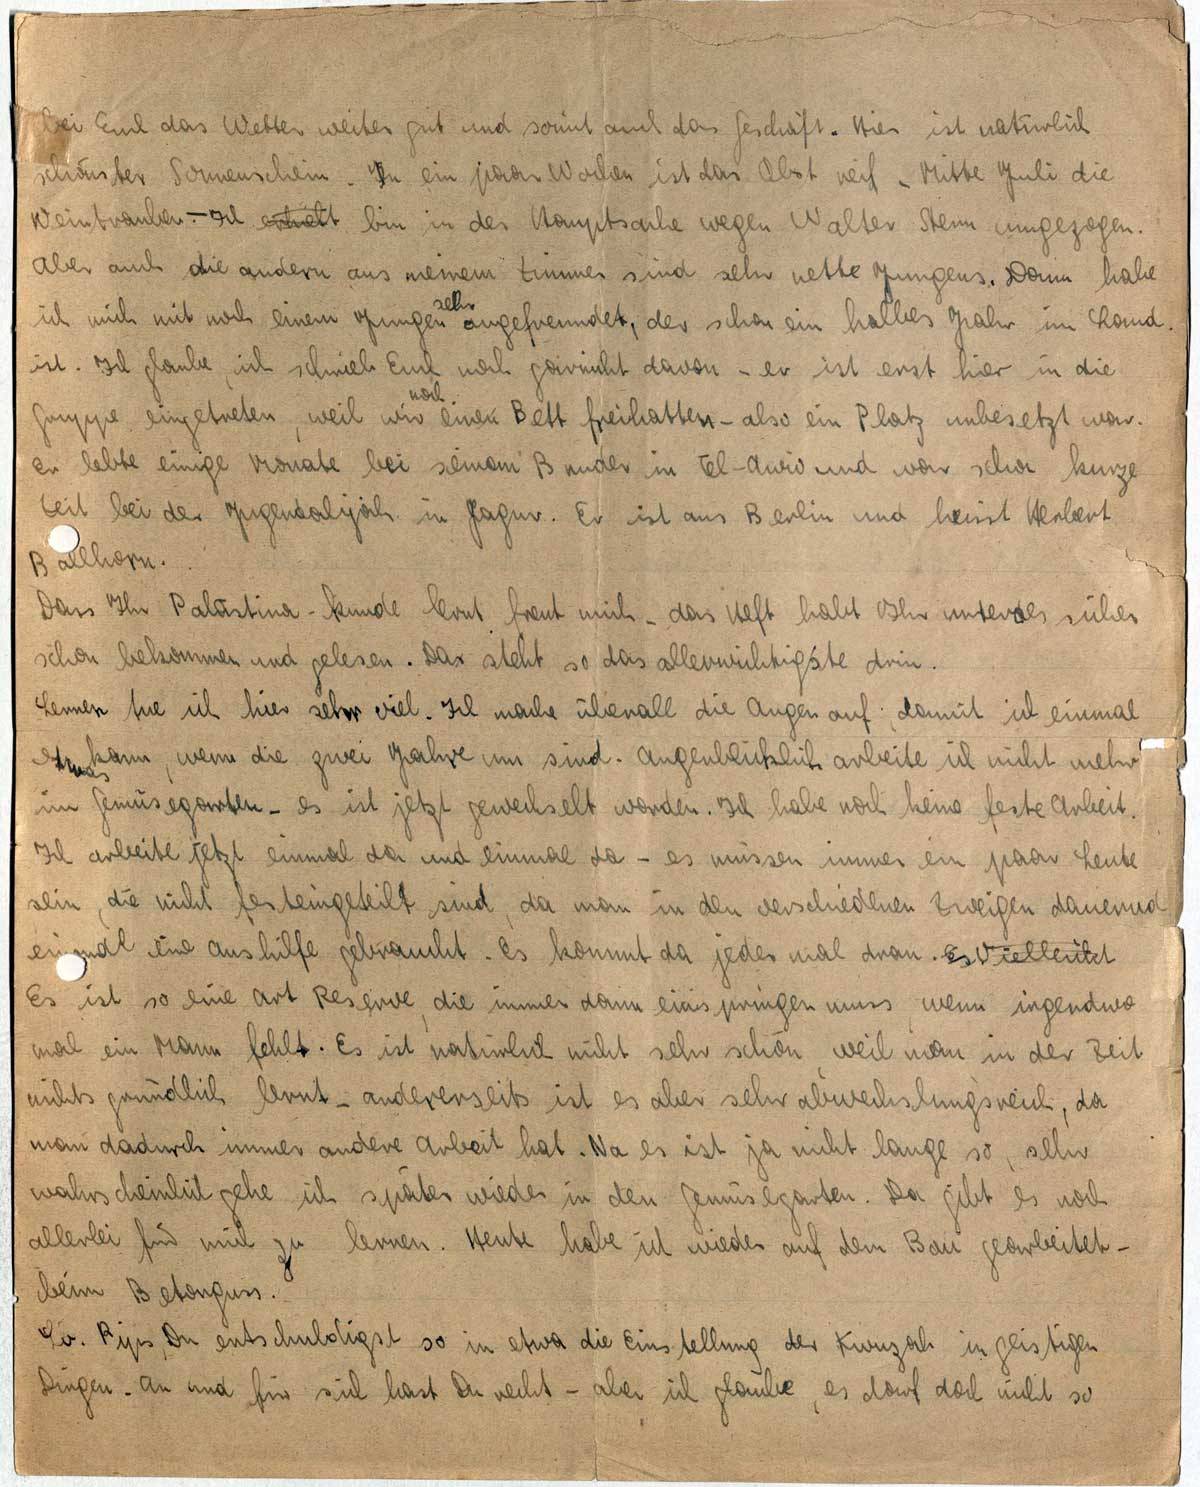 bei Euch das Wetter weiter gut und somit auch das Geschäft. Hier ist natürlich
schönster Sonnenschein. In ein paar Wochen ist das Obst reif. Mitte Juli die
Weintrauben. - Ich bin in der Hauptsache wegen Walter Stern umgezogen.
Aber auch die andern aus meinem Zimmer sind sehr nette Jungens. Dann habe
ich mich mit noch einem Jungen sehr angefreundet, der schon ein halbes Jahr im Land
ist. Ich glaube, ich schrieb Euch noch garnicht davon - er ist erst hier in die
Gruppe eingetreten, weil wir noch einen Bett freihatten - also ein Platz unbesetzt war.
Er lebte einige Monate bei seinem Bruder in Tel-Awiw und war schon kurze
Zeit bei der Jugendalijah in Jagur. Er ist aus Berlin und heisst Herbert
Ballhorn.
Dass Ihr Palästina-kunde lernt freut mich - das Heft habt Ihr unterdes sicher
schon bekommen und gelesen. Das steht so das allerwichtigste drin.
Lernen tue ich hier sehr viel. Ich mache überall die Augen auf, damit ich einmal
etwas kann, wenn die zwei Jahre um sind. Augenblicklich arbeite ich nicht mehr
im Gemüsegarten - es ist jetzt gewechselt worden. Ich habe noch keine feste Arbeit.
Ich arbeite jetzt einmal da und einmal da - es müssen immer ein paar Leute
sein, die nicht festeingeteilt sind, da man in den verschiedenen Zweigen dauernd
einmal eine Aushilfe gebraucht. Es kommt da jeder mal dran. Es Vielleicht
Es ist so eine Art Reserve, die immer dann einspringen muss, wenn irgendwo
mal ein Mann fehlt. Es ist natürlich nicht sehr schön, weil man in der Zeit
nichts gründlich lernt - andererseits ist es aber sehr abwechslungsreich, da
man dadurch immer andere Arbeit hat. Na es ist ja nicht lange so, sehr
wahrscheinlich gehe ich später wieder in den Gemüsegarten. Da gibt es noch
allerlei für mich zu lernen. Heute habe ich wieder auf dem Bau gearbeitet -
beim Betonguss.
Lb. Rips, Du entschuldigst so in etwa die Einstellung der Kwuzah in geistigen
Dingen. An und für sich hast Du recht - aber ich glaube, es darf doch nicht so